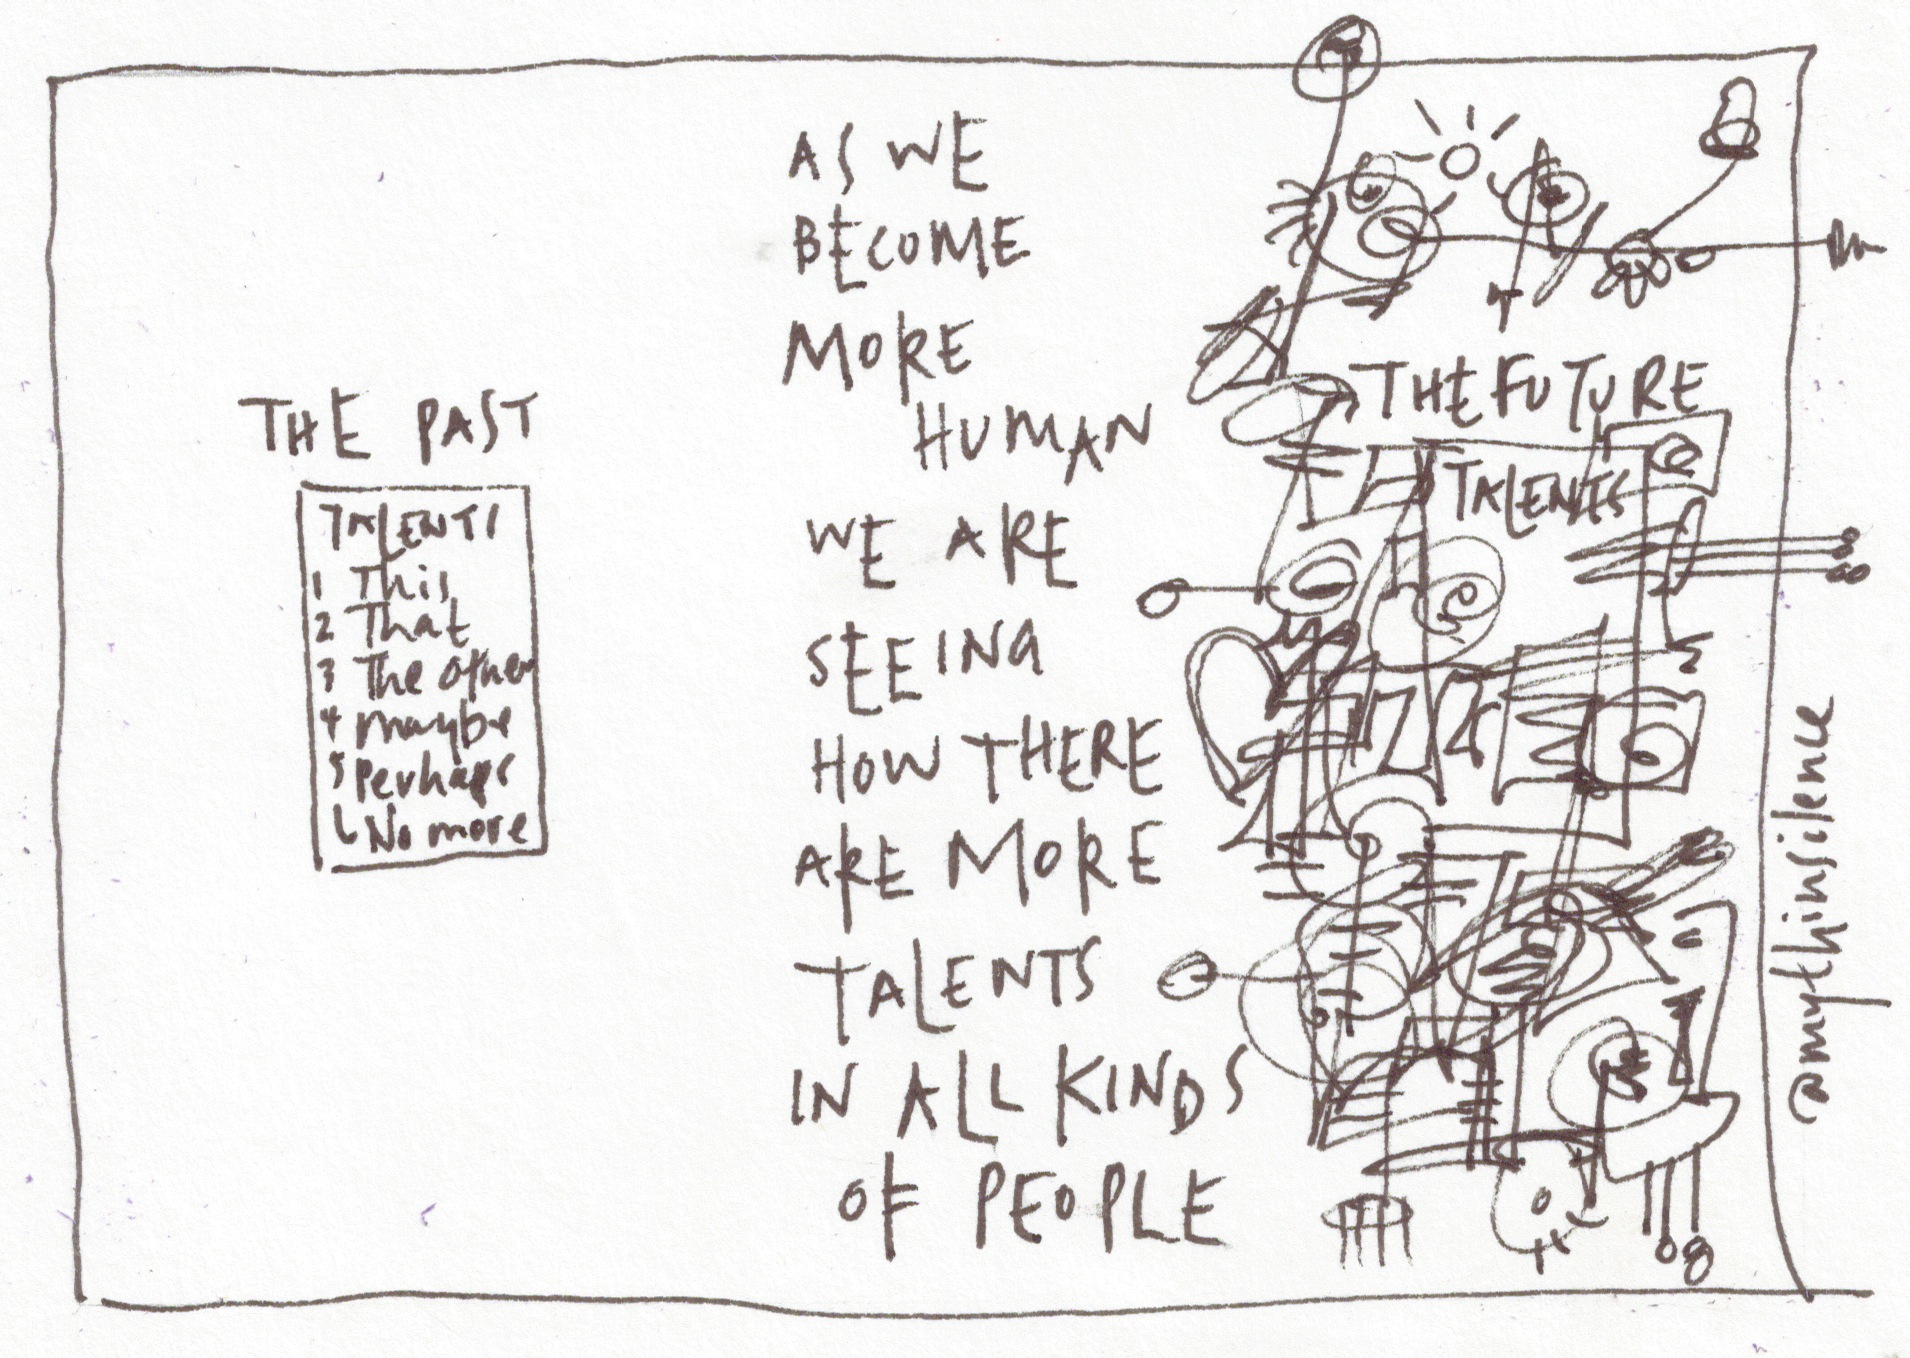 THE PAST
TALENTS
1 This
2 That
3 The other
4 maybe
5 Perhaps
6 No more
AS WE
BECOME
MORE
HUMAN
WE ARE
SEEING
HOW THERE
ARE MORE
TALENTS
IN ALL KINDS
OF PEOPLE
THE FUTURE
TALENTS
@mythinsilence